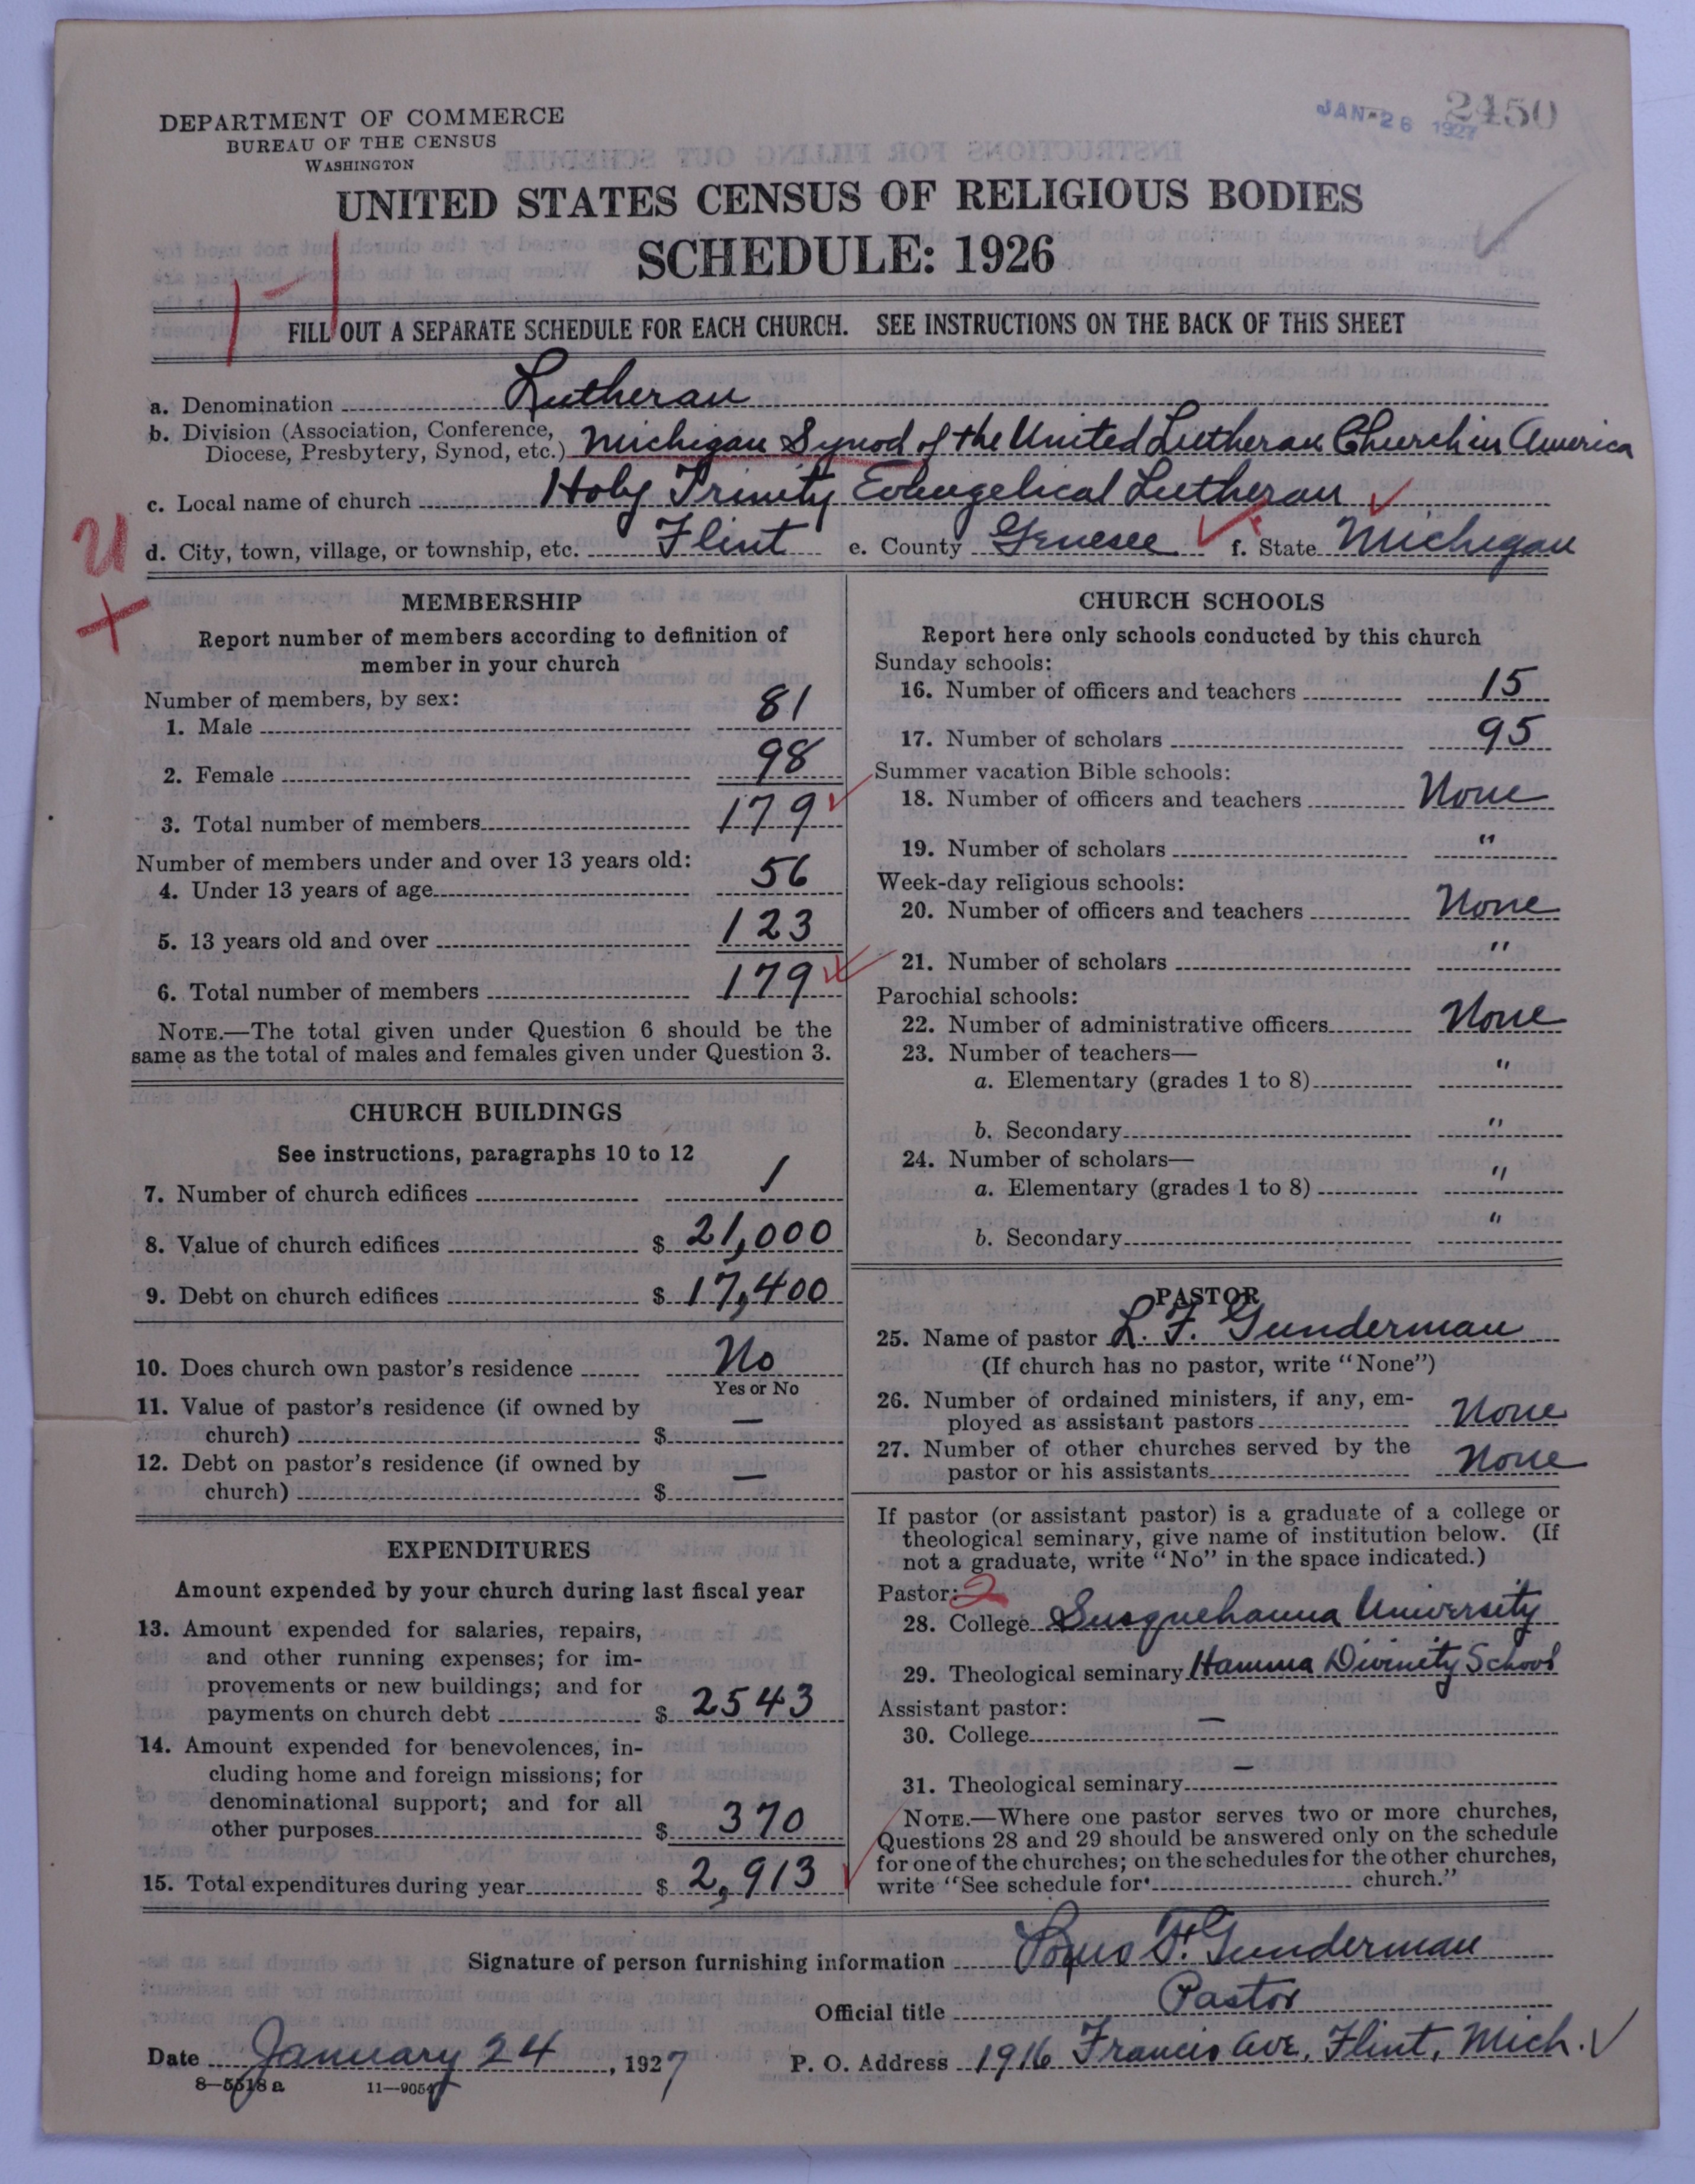 DEPARTMENT OF COMMERCE
BUREAU OF THE CENSUS
WASHINGTON
JAN 26 1927
2450
UNITED STATES CENSUS OF RELIGIOUS BODIES
SCHEDULE: 1926
FILL OUT A SEPARATE SCHEDULE FOR EACH CHURCH. SEE INSTRUCTIONS ON THE BACK OF THIS SHEET
a. Denomination Lutheran
b. Division (Association, Conference, Diocese, Presbytery, Synod, etc.) Michigan Synod of the United Lutheran Church in America
c. Local name of church Holy Trinity Evangelical Lutheran
d. City, town, village, or township, etc. Flint e. County Genesee f. State Michigan
MEMBERSHIP
Report number of members according to definition of
member in your church
Number of members, by sex:
1. Male 81
2. Female 98
3. Total number of members 179
Number of members under and over 13 years old:
4. Under 13 years of age 56
5. 13 years old and over 123
6. Total number of members 179
NOTE.—The total given under Question 6 should be the
same as the total of males and females given under Question 3.
CHURCH BUILDINGS
See instructions, paragraphs 10 to 12
7. Number of church edifices 1
8. Value of church edifices $ 21,000
9. Debt on church edifices $ 17,400
10. Does church own pastor's residence No
Yes or No
11. Value of pastor's residence (if owned by
church) $ —
12. Debt on pastor's residence (if owned by
church) $ —
EXPENDITURES
Amount expended by your church during last fiscal year
13. Amount expended for salaries, repairs,
and other running expenses; for im-
provements or new buildings; and for
payments on church debt $ 2543
14. Amount expended for benevolences, in-
cluding home and foreign missions; for
denominational support; and for all
other purposes $ 370
15. Total expenditures during year $ 2,913
CHURCH SCHOOLS
Report here only schools conducted by this church
Sunday schools:
16. Number of officers and teachers 15
17. Number of scholars 95
Summer vacation Bible schools:
18. Number of officers and teachers None
19. Number of scholars "
Week-day religious schools:
20. Number of officers and teachers None
21. Number of scholars "
Parochial schools:
22. Number of administrative officers None
23. Number of teachers—
a. Elementary (grades 1 to 8) "
b. Secondary "
24. Number of scholars—
a. Elementary (grades 1 to 8) "
b. Secondary "
PASTOR
25. Name of pastor L. F. Gunderman
(If church has no pastor, write "None")
26. Number of ordained ministers, if any, em-
ployed as assistant pastors None
27. Number of other churches served by the
pastor or his assistants None
If pastor (or assistant pastor) is a graduate of a college or
theological seminary, give name of institution below. (If
not a graduate, write "No" in the space indicated.)
Pastor: 2
28. College Susquehanna University
29. Theological seminary Hamma Divinity School
Assistant pastor:
30. College —
31. Theological seminary —
NOTE.—Where one pastor serves two or more churches,
Questions 28 and 29 should be answered only on the schedule
for one of the churches; on the schedules for the other churches,
write "See schedule for church."
Signature of person furnishing information Louis F. Gunderman
Official title Pastor
Date January 24, 1927 P. O. Address 1916 Francis Ave, Flint, Mich.
8—5518a 11—9054